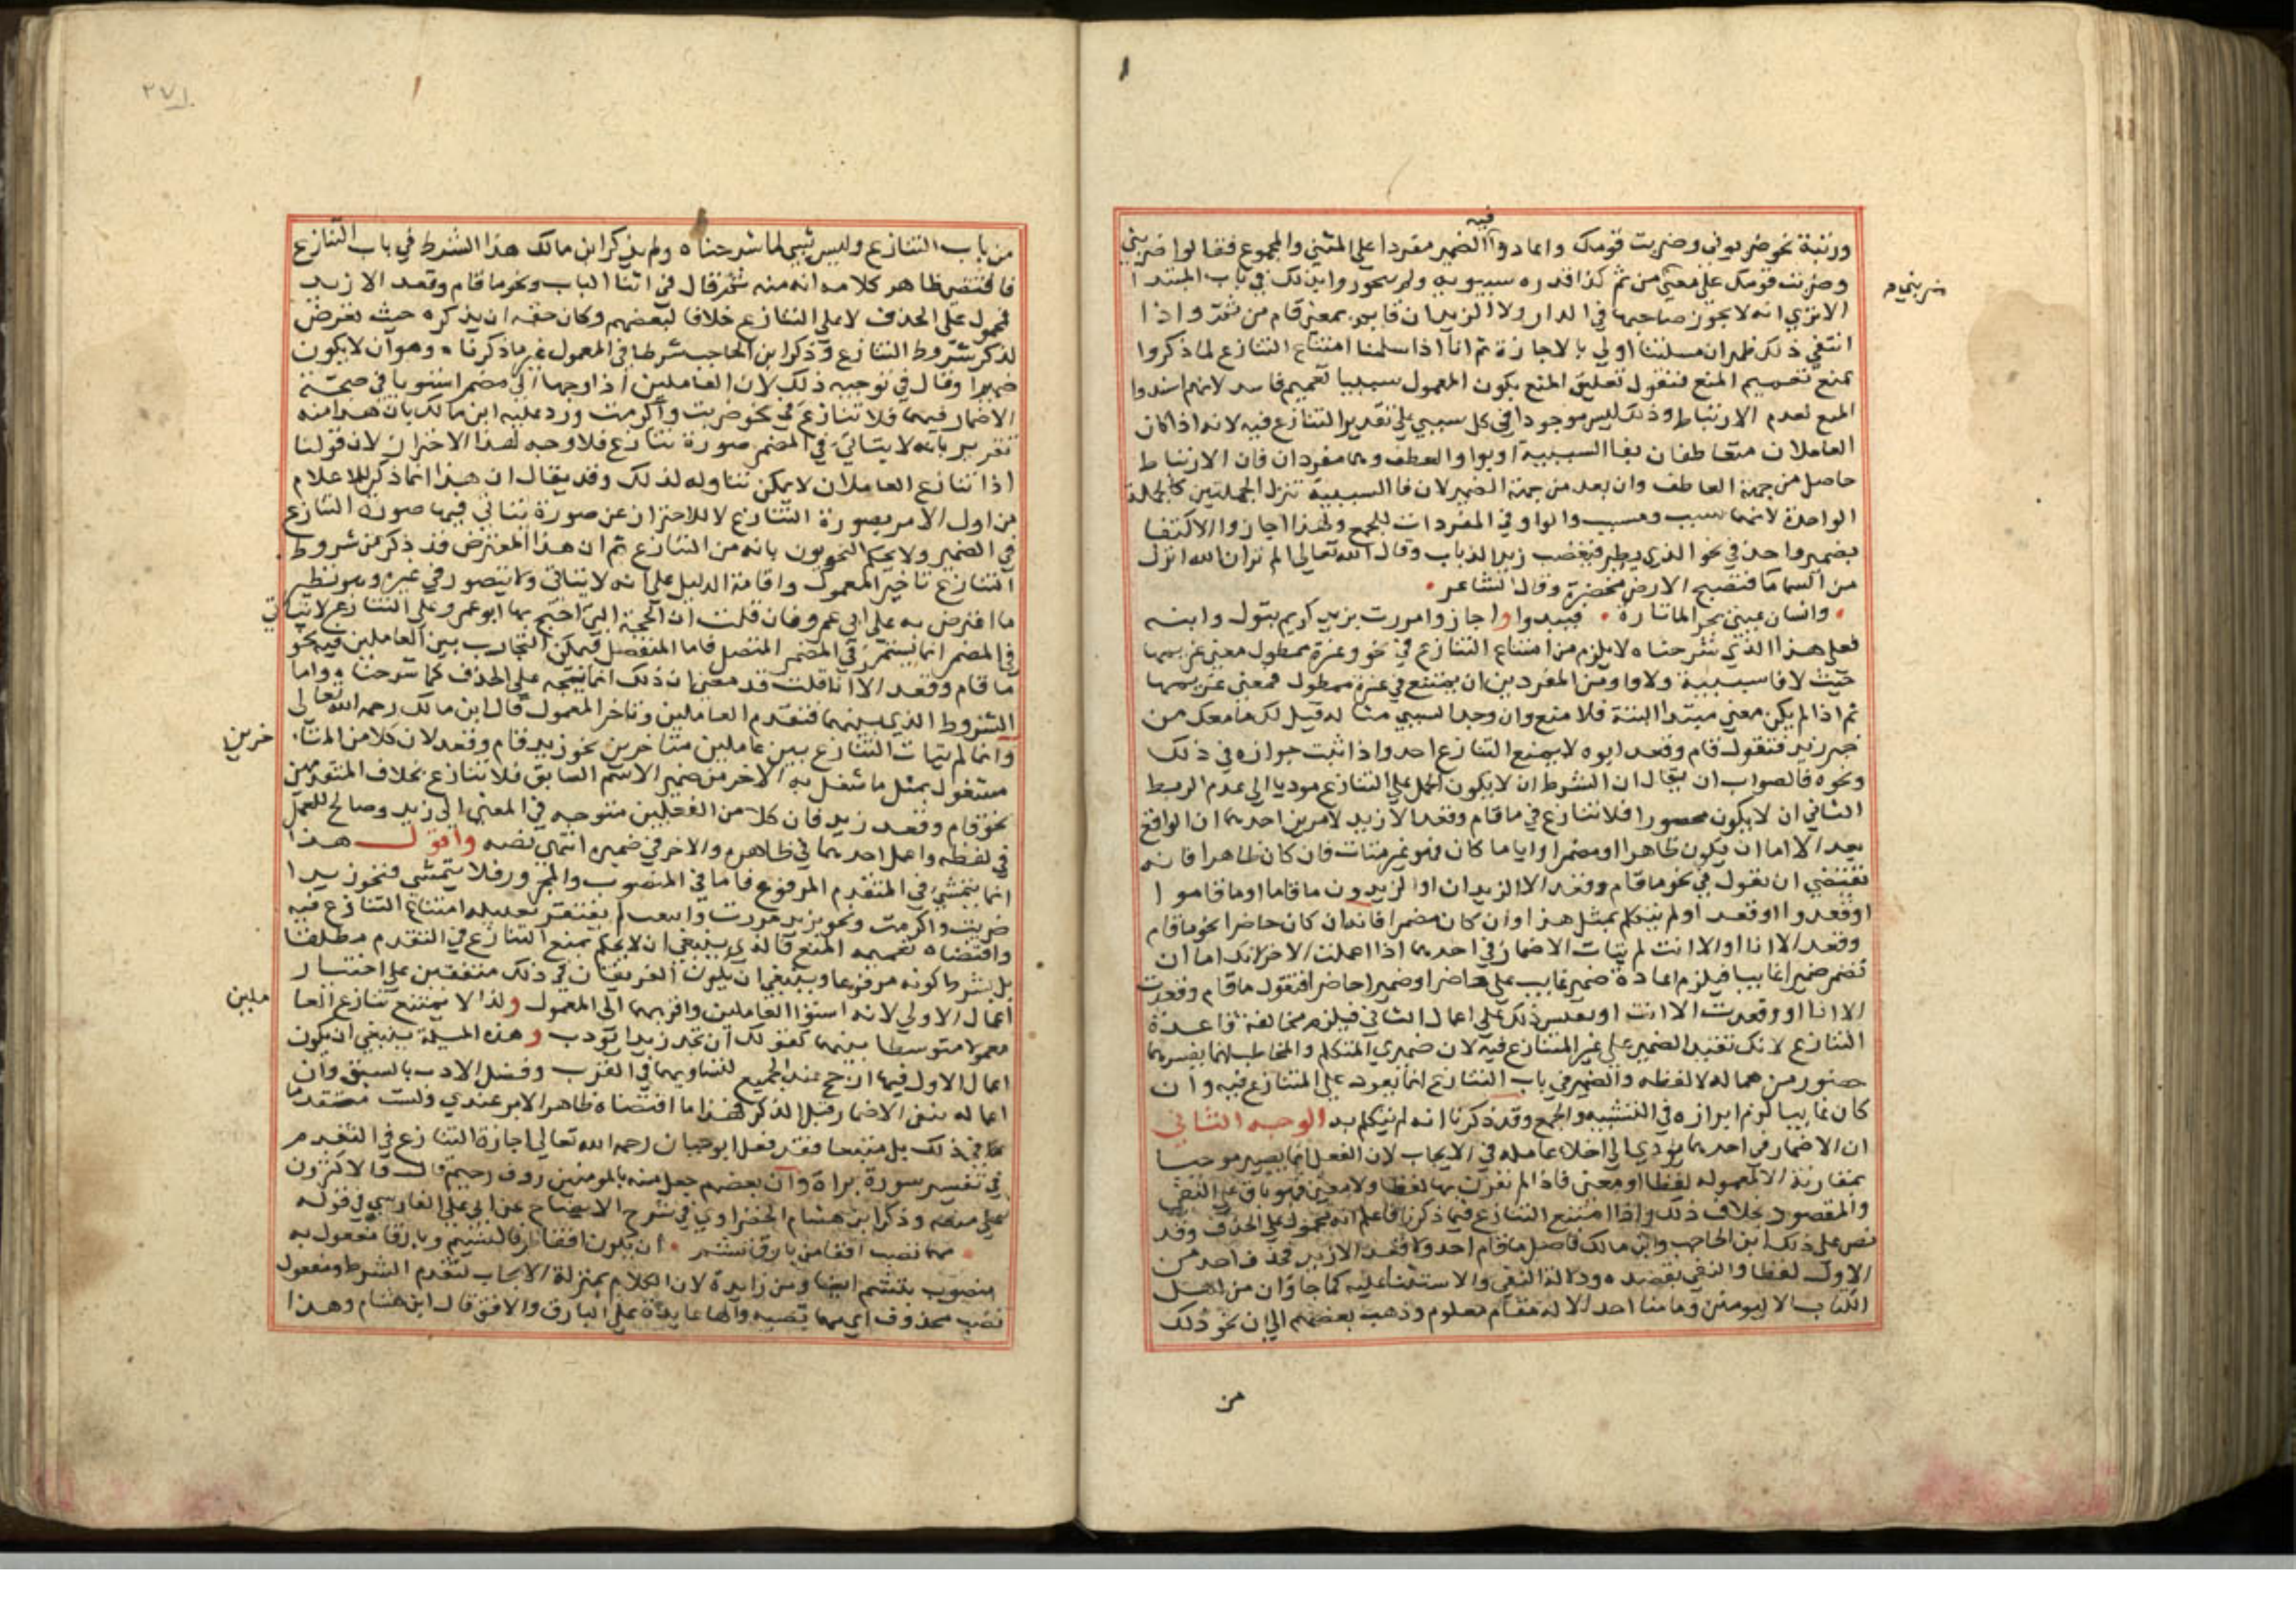 فيه
ورتبة نحو ضربوني وضربت قومك واعادوا الضمير مفردا على المثنى والمجموع فقالوا ضربني
وضربت قومك على معنى من ثم كذا قدره سيبويه ولم يجوزوا ذلك في باب المبتدا
ضربني م
الا ترى انه لا يجوز صاحبها في الدار ولا الزيدان قايم بمعنى قام من ثم واذا
انتفى ذلك ظهر ان مسلتنا اولى بالاجازة ثم انا اذا سلمنا امتناع التنازع لما ذكروا
نمنع تعميم المنع فنقول تعليق المنع بكون المعمول سببيا تعميم فاسد لانهم اسندوا
المنع لعدم الارتباط وذلك ليس موجودا في كل سببي على تقدير التنازع فيه لانه اذا كان
العاملان متعاطفان بفا السببية او بواو العطف وهما مفردان فان الارتباط
حاصل من جهة العاطف وان بعد من جهة الضمير لان فا السببية تنزل الجملتين كالجملة
الواحدة لانهما سبب ومسبب والواو في المفردات للجمع ولهذا اجازوا الاكتفا
بضمير واحد في نحو الذي يطير فيغضب زيد الذباب وقال الله تعالى الم تر ان الله انزل
من السما ما فتصبح الارض مخضرة وقال الشاعر
وانسان عيني يحسر الما تارة فيبدوا واجازوا مررت بزيد كريم بتول وابنه
فعلى هذا الذي شرحناه لا يلزم من امتناع التنازع في نحو وعزة ممطول معنى غريمها
حيث لا فا سببية ولا واو من المفردين ان يمتنع في عزة ممطول فمعنى غريمها
ثم اذا لم يكن معنى مبتدا البتة فلا منع وان وجد السببي مثاله قيل لك ما معك من
خبر زيد فتقول قام وقعد ابوه لا يمنع التنازع احد واذا ثبت جوازه في ذلك
ونحوه فالصواب ان يقال ان الشرط ان لا يكون الحمل على التنازع موديا الى عدم الربط
الثاني ان لا يكون محصورا فلا تنازع في ما قام وقعد الا زيد لامرين احدهما ان الواقع
بعد الا اما ان يكون ظاهرا او مضمرا وايا ما كان فهو غير متات فان كان ظاهرا فانه
يقتضي ان نقول في نحو ما قام وقعد الا الزيدان او الزيدون ما قاما او ما قاموا
او قعدوا او قعد او لم يتكلم بمثل هذا وان كان مضمرا فانه ان كان حاضرا نحو ما قام
وقعد الا انا او الا انت لم يتات الاضمار في احدهما اذا اعملت الاخر لانك اما ان
تضمر ضميرا غايبا فيلزم اعادة ضمير غايب على حاضر او ضميرا حاضرا فتقول ما قام وقعدت
الا انا او وقعدت الا انت او بعكس ذلك على اعمال الثاني فيلزم مخالفة قاعدة
التنازع لانك تقيد الضمير على غير المتنازع فيه لان ضميري المتكلم والمخاطب انما يفسرهما
حضور من هما له لا لفظه والضمير في باب التنازع انما يعود على المتنازع فيه وان
كان غايبا لزم ابرازه في التثنية والجمع وقد ذكرنا انه لم يتكلم به الوجه الثاني
ان الاضمار في احدهما يودي الى اخلاء عامله في الايجاب لان الفعل انما يصير موجبا
بمقارنة الا لمعموله لفظا او معنى فاذا لم تقترن بها لفظا ولا معنى فهو باق على النفي
والمقصود بخلاف ذلك واذا امتنع التنازع فيما ذكرنا فاعلم انه محمول على الحذف وقد
نص على ذلك ابن الحاجب وابن مالك فاصل ما قام احد ولا قعد الا زيد فحذف احد من
الاول لفظا والنفي بقصده ودلالة النفي والاستثنا عليه كما جا وان من اهل
الكتاب الا ليومنن وما منا احد الا له مقام معلوم وذهب بعضهم الى ان نحو ذلك
من
٢٧١
من باب التنازع وليس بشي لما شرحناه ولم يذكر ابن مالك هذا الشرط في باب التنازع
فاقتضى ظاهر كلامه انه منه ثم قال في اثنا الباب ونحو ما قام وقعد الا زيد
محمول على الحذف لا على التنازع خلافا لبعضهم وكان حقه ان يذكره حيث تعرض
لذكر شروط التنازع وذكر ابن الحاجب شرطا في المعمول غير ما ذكرناه وهو ان لا يكون
ضميرا وقال في توجيه ذلك لان العاملين اذا وجها الى مضمر استويا في صحة
الاضمار فيهما فلا تنازع في نحو ضربت واكرمت ورد عليه ابن مالك بان هذا منه
تقرير بانه لا يتاتى في المضمر صورة تنازع فلا وجه لهذا الاحتراز لان قولنا
اذا تنازع العاملان لا يمكن تناوله لذلك وقد يقال ان هذا انما ذكر للاعلام
من اول الامر بصورة التنازع لا للاحتراز عن صورة يتاتى فيها صورة التنازع
في الضمير ولا يحكم النحويون بانه من التنازع ثم ان هذا المعترض قد ذكر من شروط
التنازع تاخير المعمول واقامة الدليل على انه لا يتاتى ولا يتصور في غيره وهو نظير
ما اعترض به على ابي عمرو فان قلت ان الحجة التي احتج بها ابو عمرو على التنازع لا يتاتى
في المضمر انما يستمر في المضمر المتصل فاما المنفصل فيمكن التجارب بين العاملين فيه نحو
ما قام وقعد الا انا قلت قد معنى ان ذلك انما يتجه على الحذف كما شرحناه واما
الشروط الذي بينهما فتقدم العاملين وتاخر المعمول قال ابن مالك رحمه الله تعالى
وانما لم يتات التنازع بين عاملين متاخرين نحو زيد قام وقعد لان كلا من المتا
خرين
مشغول بمثل ما شغل به الاخر من ضمير الاسم السابق فلا تنازع بخلاف المتقدمين
نحو قام وقعد زيد فان كلا من الفعلين متوجه في المعنى الى زيد وصالح للعمل
في لفظه واعمل احدهما في ظاهره والاخر في ضميره انتهى نصه واقول هذا
انما يتمشى في المتقدم المرفوع فاما في المنصوب والمجرور فلا يتمشى فنحو زيدا
ضربت واكرمت ونحو بزيد مررت لم يفتقر تعليله امتناع التنازع فيه
واقتضاه تعميمه المنع فالذي ينبغي ان لا يحكم بمنع التنازع في التقدم مطلقا
بل بشرط كونه مرفوعا وينبغي ان يكون الفريقان في ذلك متفقين على اختيار
اعمال الاولى لانه اسبق العاملين واقربهما الى المعمول ولذا لا يمتنع تنازع العا
ملين
معمولا متوسطا بينهما كقولك ان تجد زيدا تودب وهذه المسلة ينبغي ان يكون
اعمال الاول فيها ارجح عند الجميع لتساويهما في القرب وفضل الاول بالسبق وان
اعماله ينفي الاضمار قبل الذكر فهذا ما اقتضاه ظاهر الامر عندي ولست مبتدعا
في ذلك بل متبعا فقد نقل ابو حيان رحمه الله تعالى اجازة التنازع في التقدم
في تفسير سورة براة وان بعضهم جعل منه بالمومنين روف رحيم قال فالاكثرون
على منعه وذكر ابن هشام الخضراوي في شرح الايضاح عن ابي علي الفارسي في قوله
مهما تصب افقا من بارق تشم ان يكون افقا ظرفا لتشم وبارقا مفعول به
منصوب بتشم ايضا ومن زايدة لان الكلام بمنزلة الايجاب لتقدم الشرط ومفعول
تصب محذوف اي مهما تصبه والها عايدة على البارق والافق قال ابن هشام وهذا